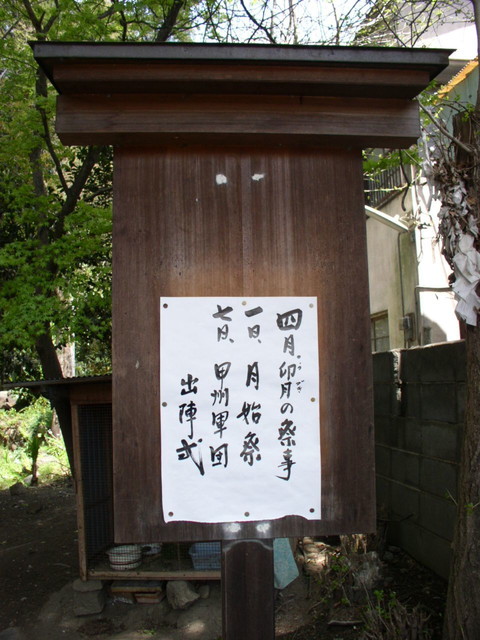 四月卯月の祭事
一日、月始祭
七日、甲州軍団
出陣式